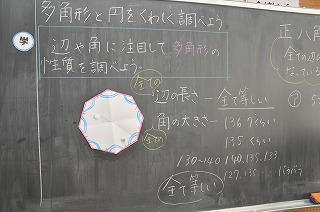 多角形と円をくわしく調べよう
学
辺や角に注目して多角形の
性質を調べよう。
全ての
辺の長さ―全て等しい
角の大きさ―136.7くらい
全ての
135くらい
130~140 140.135.133
127.135
全て等しい
正八角
全ての辺
なってい